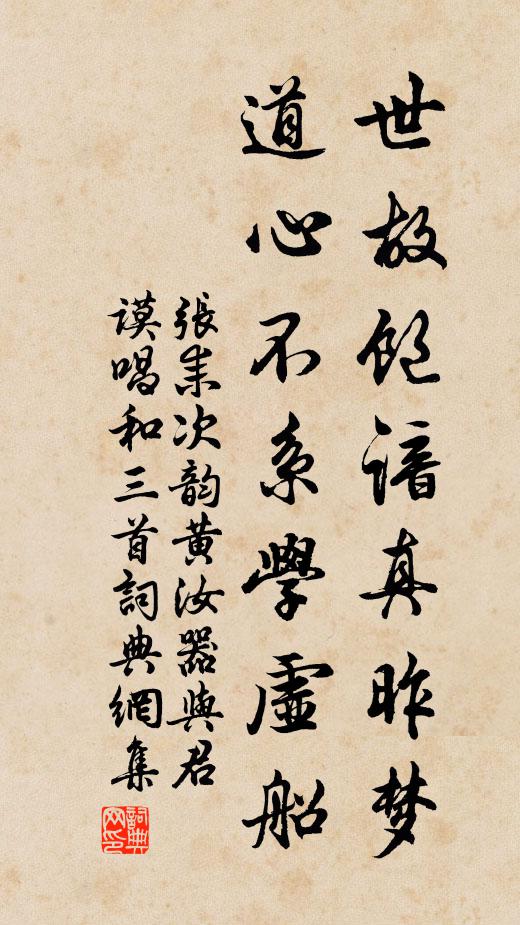 世故饱谙真昨梦
道心不系學虛船
張耒次韵黄汝器與君
谟唱和三首詞典網集
詞典网印